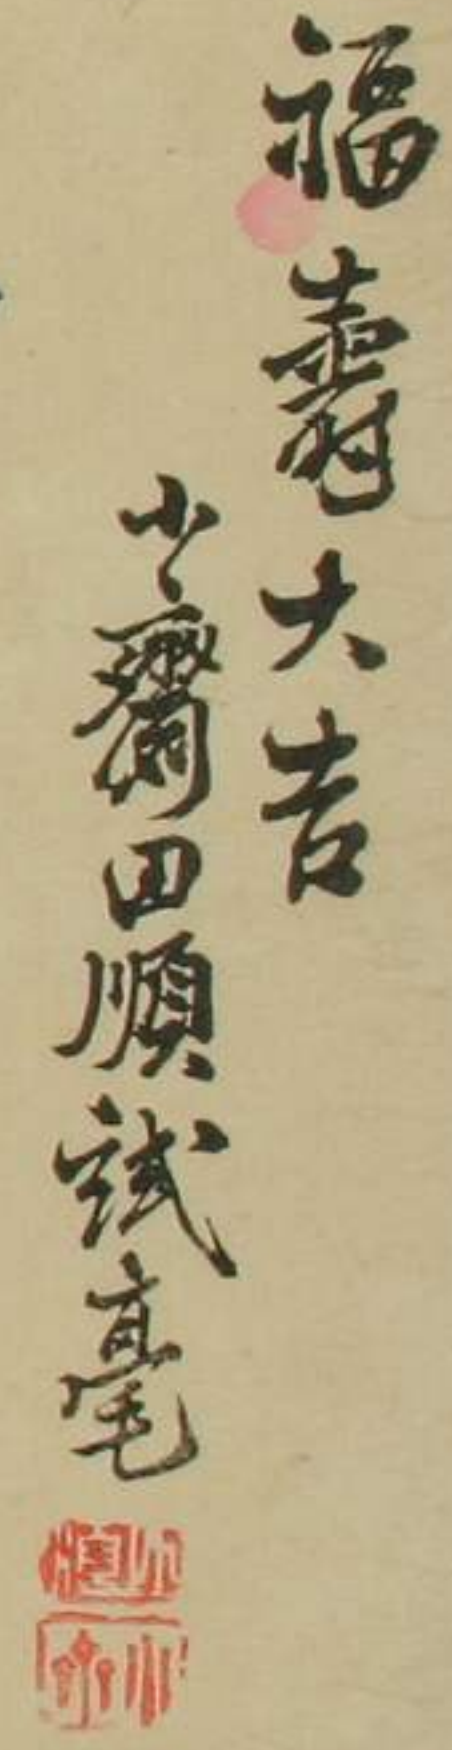 福壽大吉
小齋田順試毫